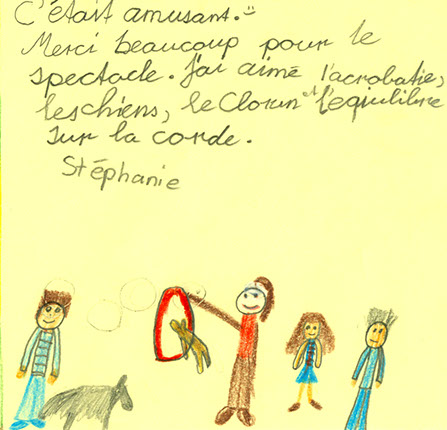 C'était amusant. :)
Merci beaucoup pour le
spectacle. J'ai aimé l'acrobaties,
les chiens, le Clown et l'équilibre
sur la corde.
Stéphanie